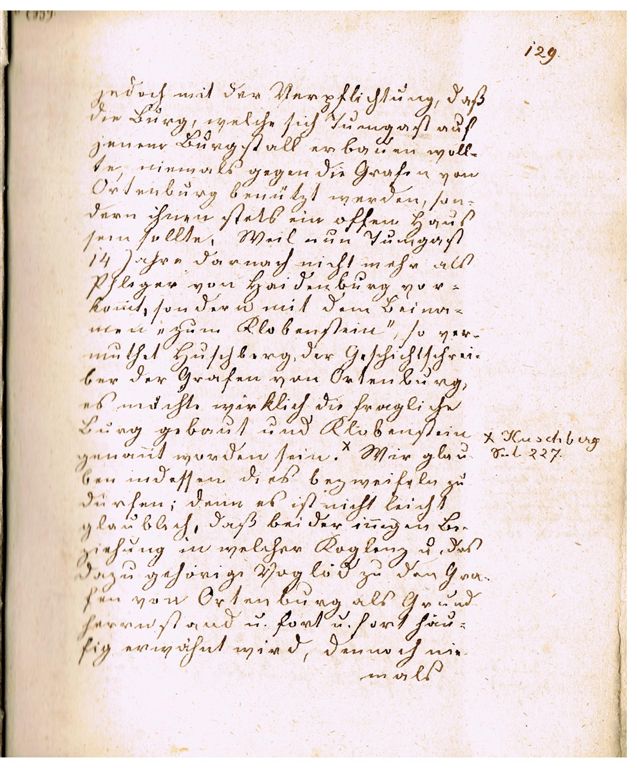 129.
jedoch mit der Verpflichtung, daß
die Burg, welche sich Tumgast auf
jenem Burgstall erbauen woll-
te, niemals gegen die Grafen von
Ortenburg benützt werden, son-
dern ihnen stets ein offen Haus
sein sollte. Weil nun Tumgast
14 Jahre darnach nicht mehr als
Pfleger von Haidenburg vor-
kommt, sondern mit dem Beina-
men „zum Klobenstein", so ver-
muthet Huschberg, der Geschichtschrei-
ber der Grafen von Ortenburg,
es möchte wirklich die fragliche
Burg gebaut und Klobenstein
genan̄t worden sein.x Wir glau
ben indessen dies bezweifeln zu
dürfen; denn es ist nicht leicht
glaublich, daß bei der in̄igen Be-
ziehung in welcher Koglenz u. das
dazu gehörige Voglöd zu den Gra-
fen von Ortenburg als Grund
herrn stand u. fort u. fort häu-
fig erwähnt wird, dennoch nie-
mals
x Huschberg
Seit. 227.